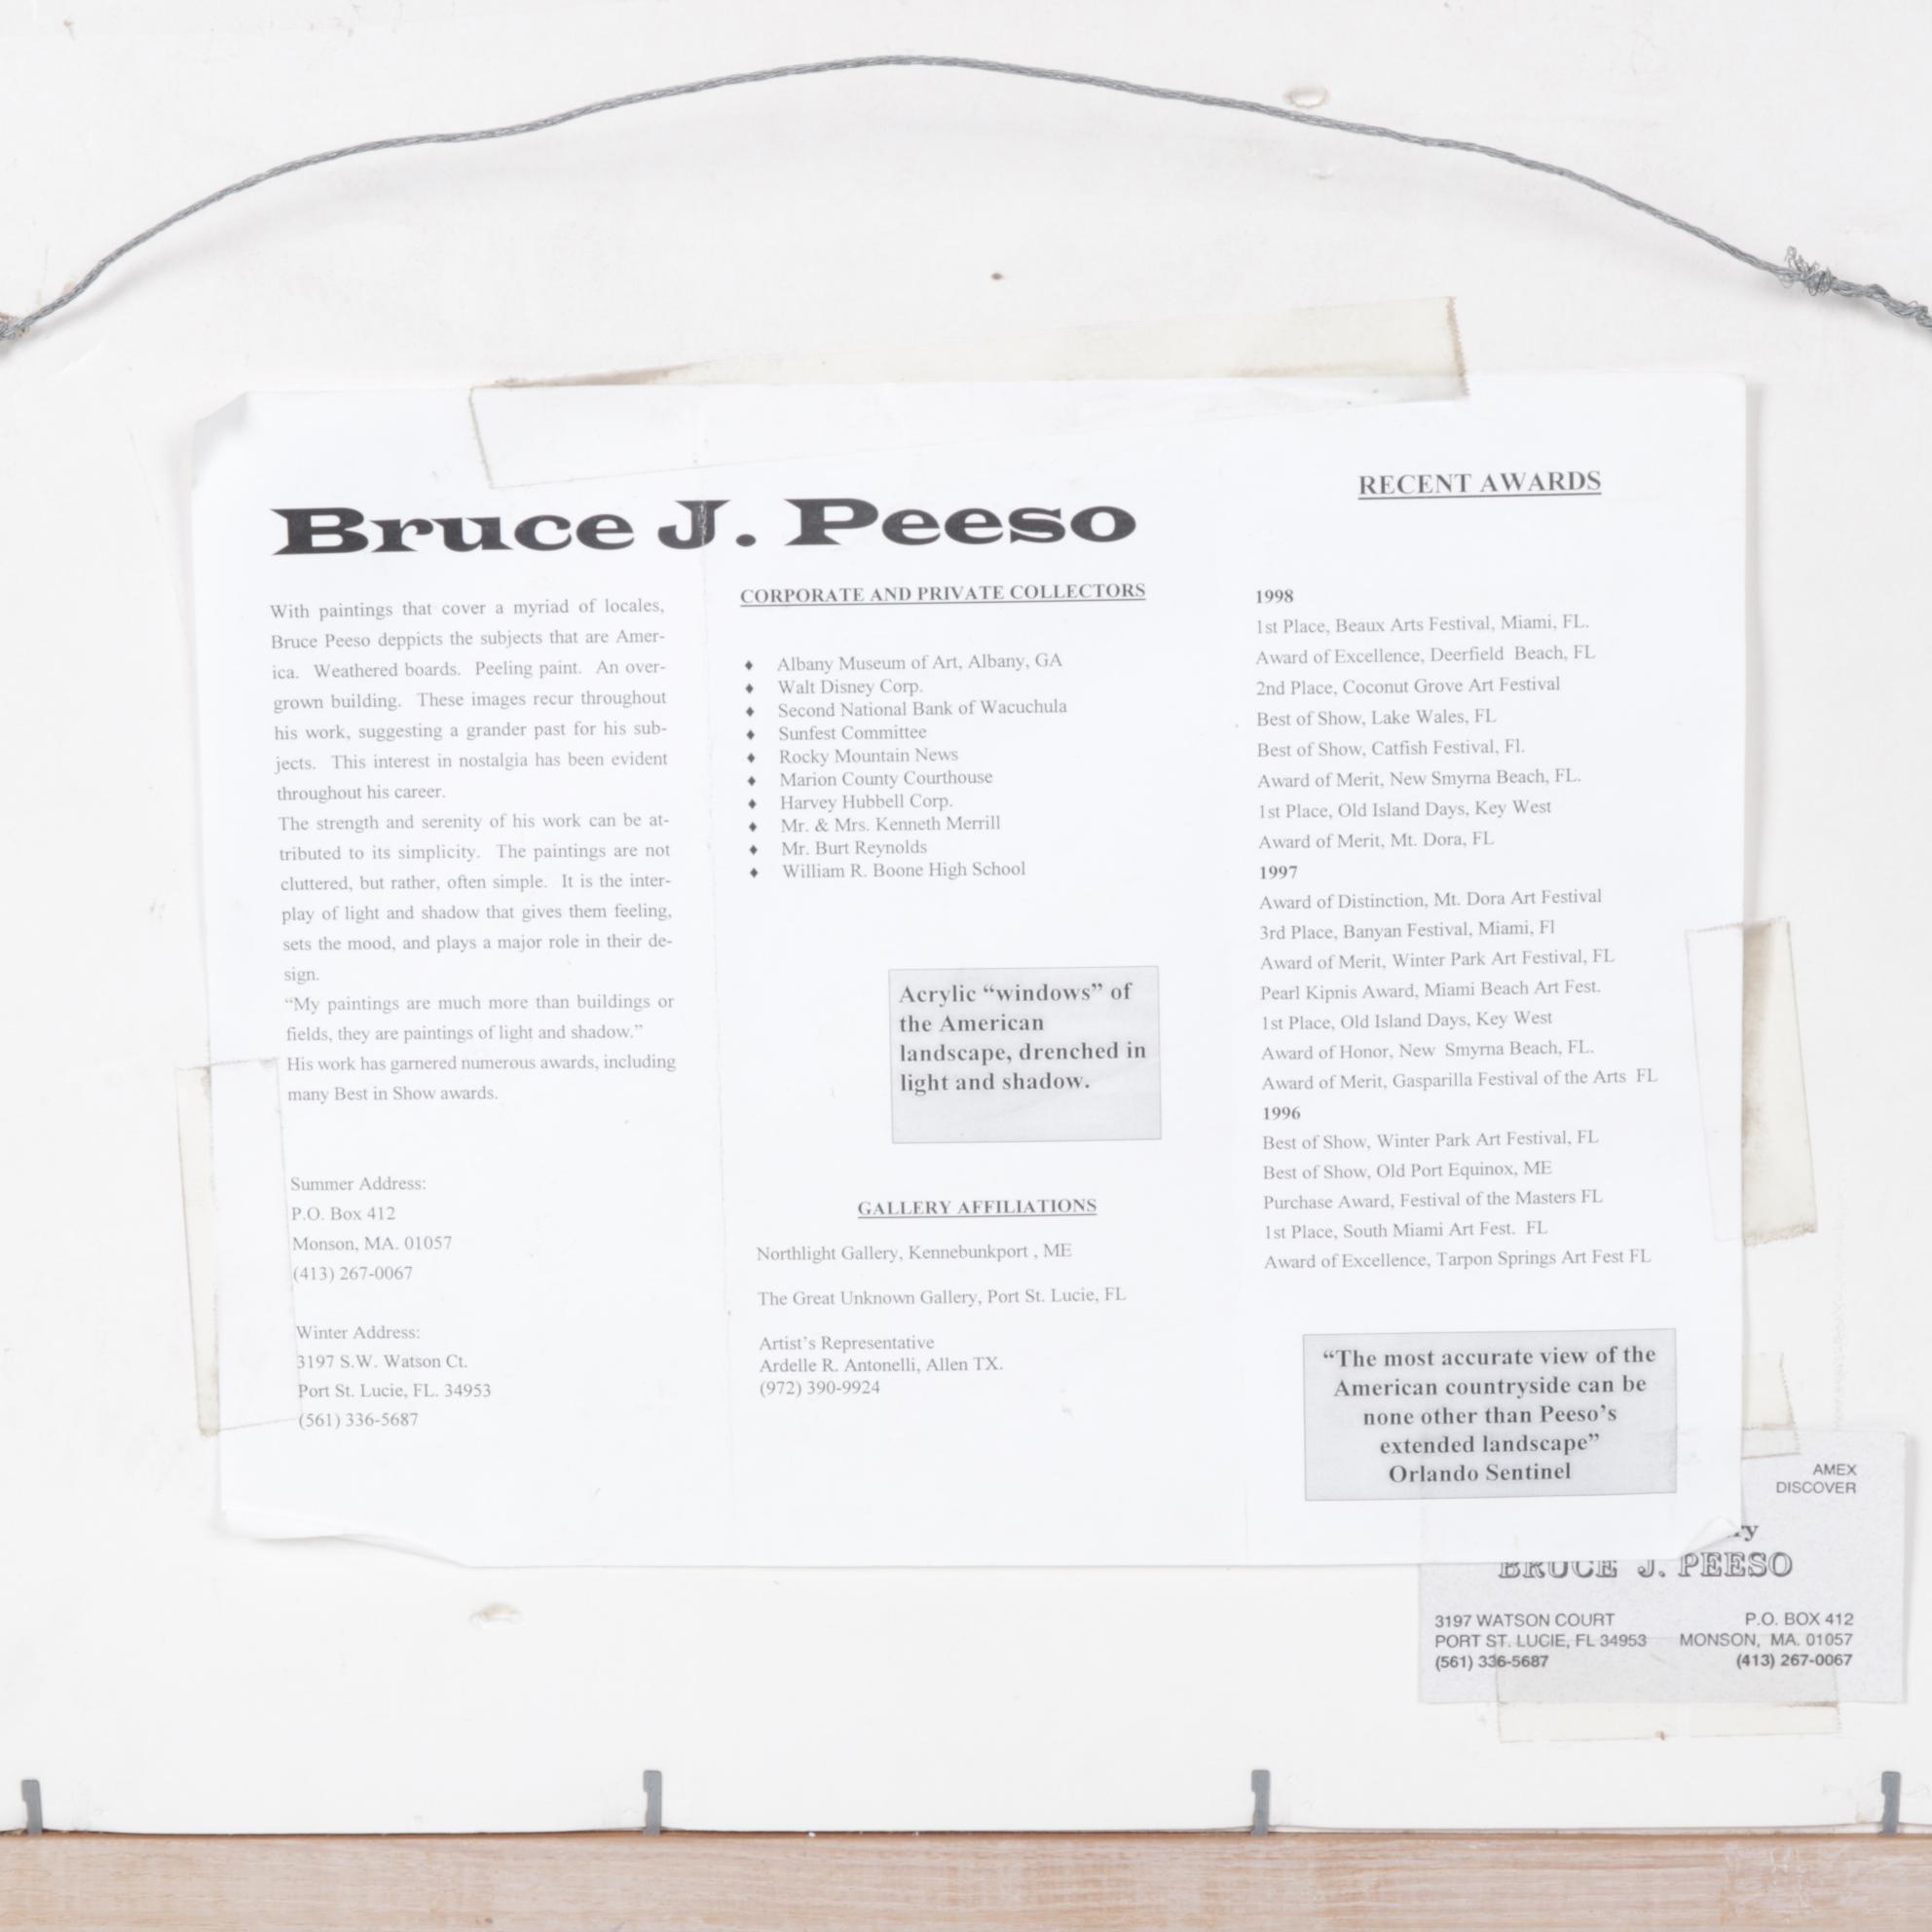 Bruce J. Peeso
With paintings that cover a myriad of locales,
Bruce Peeso deppicts the subjects that are Amer-
ica. Weathered boards. Peeling paint. An over-
grown building. These images recur throughout
his work, suggesting a grander past for his sub-
jects. This interest in nostalgia has been evident
throughout his career.
The strength and serenity of his work can be at-
tributed to its simplicity. The paintings are not
cluttered, but rather, often simple. It is the inter-
play of light and shadow that gives them feeling,
sets the mood, and plays a major role in their de-
sign.
“My paintings are much more than buildings or
fields, they are paintings of light and shadow.”
His work has garnered numerous awards, including
many Best in Show awards.
Summer Address:
P.O. Box 412
Monson, MA. 01057
(413) 267-0067
Winter Address:
3197 S.W. Watson Ct.
Port St. Lucie, FL. 34953
(561) 336-5687
CORPORATE AND PRIVATE COLLECTORS
♦ Albany Museum of Art, Albany, GA
♦ Walt Disney Corp.
♦ Second National Bank of Wacuchula
♦ Sunfest Committee
♦ Rocky Mountain News
♦ Marion County Courthouse
♦ Harvey Hubbell Corp.
♦ Mr. & Mrs. Kenneth Merrill
♦ Mr. Burt Reynolds
♦ William R. Boone High School
Acrylic “windows” of
the American
landscape, drenched in
light and shadow.
GALLERY AFFILIATIONS
Northlight Gallery, Kennebunkport , ME
The Great Unknown Gallery, Port St. Lucie, FL
Artist’s Representative
Ardelle R. Antonelli, Allen TX.
(972) 390-9924
RECENT AWARDS
1998
1st Place, Beaux Arts Festival, Miami, FL.
Award of Excellence, Deerfield Beach, FL
2nd Place, Coconut Grove Art Festival
Best of Show, Lake Wales, FL
Best of Show, Catfish Festival, Fl.
Award of Merit, New Smyrna Beach, FL.
1st Place, Old Island Days, Key West
Award of Merit, Mt. Dora, FL
1997
Award of Distinction, Mt. Dora Art Festival
3rd Place, Banyan Festival, Miami, Fl
Award of Merit, Winter Park Art Festival, FL
Pearl Kipnis Award, Miami Beach Art Fest.
1st Place, Old Island Days, Key West
Award of Honor, New Smyrna Beach, FL.
Award of Merit, Gasparilla Festival of the Arts FL
1996
Best of Show, Winter Park Art Festival, FL
Best of Show, Old Port Equinox, ME
Purchase Award, Festival of the Masters FL
1st Place, South Miami Art Fest. FL
Award of Excellence, Tarpon Springs Art Fest FL
“The most accurate view of the
American countryside can be
none other than Peeso’s
extended landscape”
Orlando Sentinel
AMEX
DISCOVER
BRUCE J. PEESO
3197 WATSON COURT
PORT ST. LUCIE, FL 34953
(561) 336-5687
P.O. BOX 412
MONSON, MA. 01057
(413) 267-0067